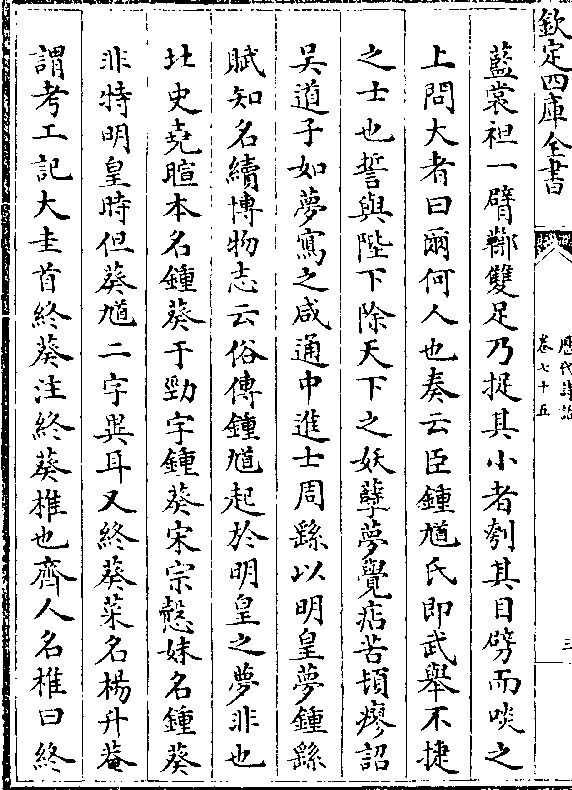 欽定四庫全書
歷代詩話
卷七十五
三
藍裳袒一臂鞹雙足乃捉其小者刳其目劈而啖之
上問大者曰爾何人也奏云臣鍾馗氏即武舉不捷
之士也誓與陛下除天下之妖孽夢覺痁苦頓瘳詔
吳道子如夢寫之咸通中進士周繇以明皇夢鍾繇
賦知名續博物志云俗傳鍾馗起於明皇之夢非也
北史堯暄本名鍾葵于勁字鍾葵宋宗愨妹名鍾葵
非特明皇時但葵馗二字異耳又終葵菜名楊升菴
謂考工記大圭首終葵注終葵椎也齊人名椎曰終